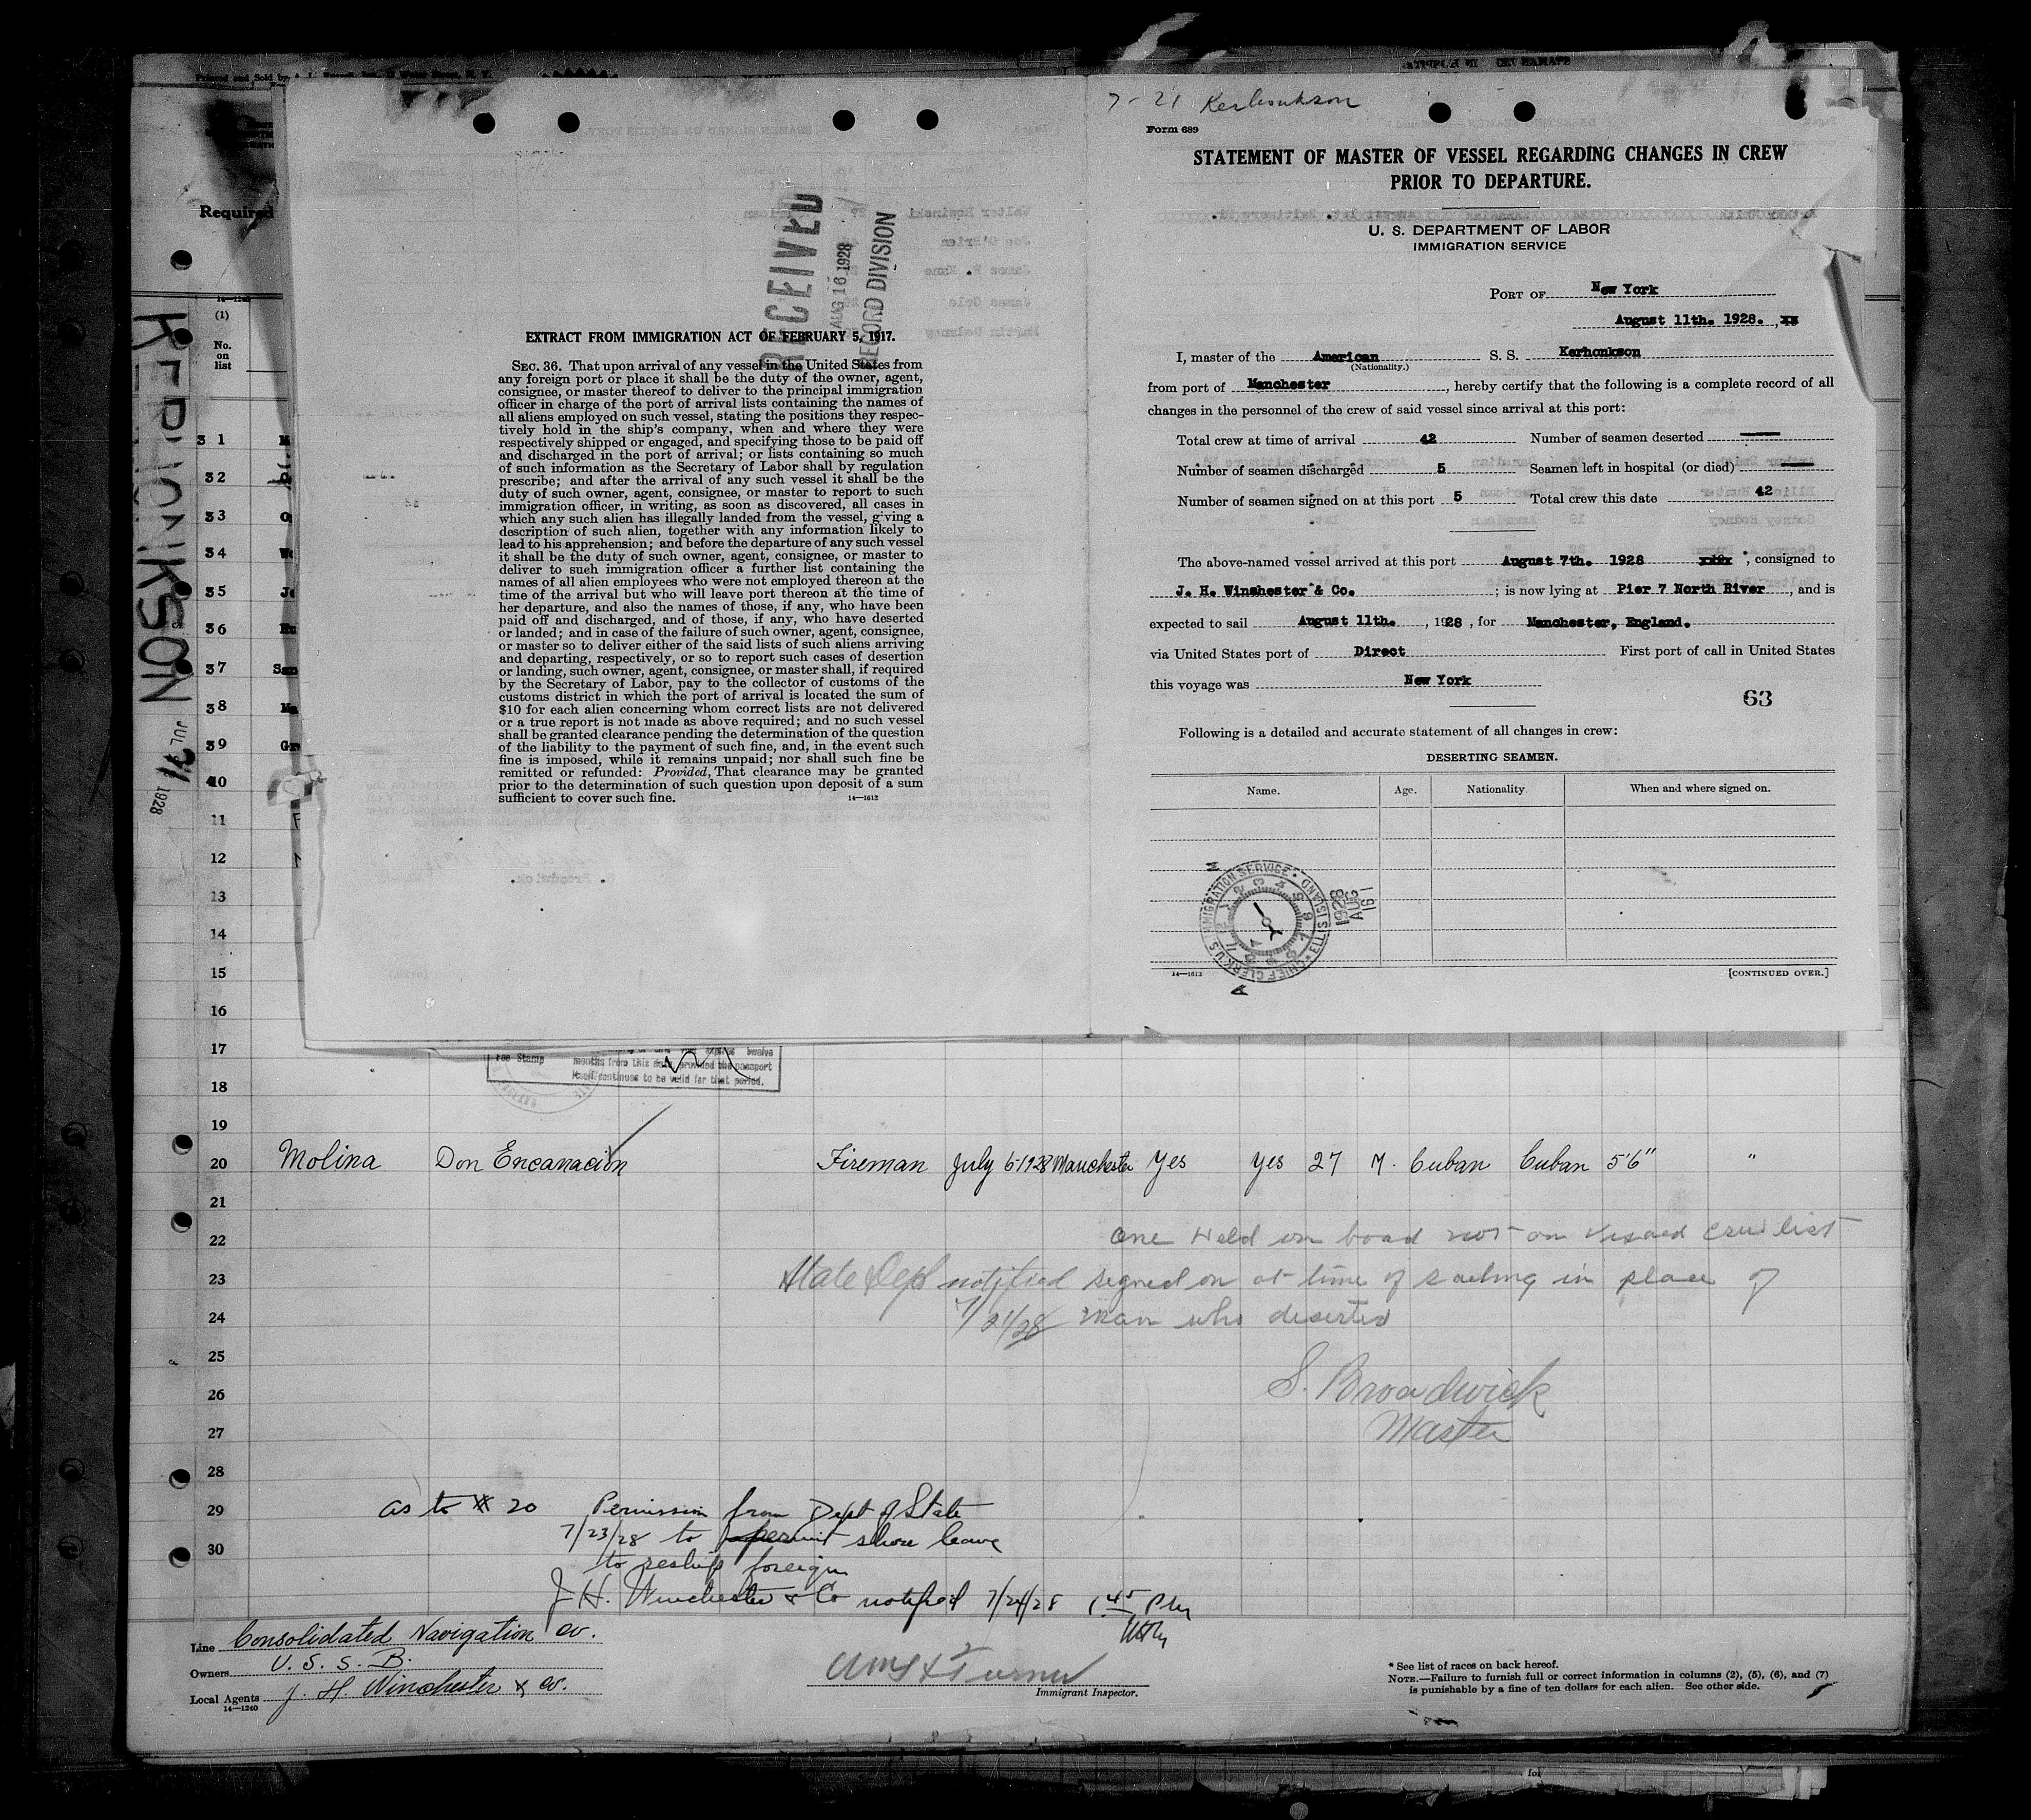 7-21 Kerhonkson
Form 689
STATEMENT OF MASTER OF VESSEL REGARDING CHANGES IN CREW
PRIOR TO DEPARTURE.
U. S. DEPARTMENT OF LABOR
IMMIGRATION SERVICE
PORT OF New York
August 11th. 1928. , xx
I, master of the American S. S. Kerhonkson
(Nationality.)
from port of Manchester, hereby certify that the following is a complete record of all
changes in the personnel of the crew of said vessel since arrival at this port:
Total crew at time of arrival 42 Number of seamen deserted —
Number of seamen discharged 5 Seamen left in hospital (or died) —
Number of seamen signed on at this port 5 Total crew this date 42
The above-named vessel arrived at this port August 7th. 1928 , consigned to
J. H. Winshester & Co. ; is now lying at Pier 7 North River, and is
expected to sail August 11th. , 1928, for Manchester, England.
via United States port of Direct First port of call in United States
this voyage was New York
63
Following is a detailed and accurate statement of all changes in crew:
DESERTING SEAMEN.
Name. Age. Nationality When and where signed on.
CHIEF CLERK U.S. IMMIGRATION SERVICE • ELLIS ISLAND
1928
AUG
16
14—1612 [CONTINUED OVER.]
RECEIVED
AUG 16 1928
RECORD DIVISION
EXTRACT FROM IMMIGRATION ACT OF FEBRUARY 5, 1917.
SEC. 36. That upon arrival of any vessel in the United States from
any foreign port or place it shall be the duty of the owner, agent,
consignee, or master thereof to deliver to the principal immigration
officer in charge of the port of arrival lists containing the names of
all aliens employed on such vessel, stating the positions they respec-
tively hold in the ship's company, when and where they were
respectively shipped or engaged, and specifying those to be paid off
and discharged in the port of arrival; or lists containing so much
of such information as the Secretary of Labor shall by regulation
prescribe; and after the arrival of any such vessel it shall be the
duty of such owner, agent, consignee, or master to report to such
immigration officer, in writing, as soon as discovered, all cases in
which any such alien has illegally landed from the vessel, giving a
description of such alien, together with any information likely to
lead to his apprehension; and before the departure of any such vessel
it shall be the duty of such owner, agent, consignee, or master to
deliver to such immigration officer a further list containing the
names of all alien employees who were not employed thereon at the
time of the arrival but who will leave port thereon at the time of
her departure, and also the names of those, if any, who have been
paid off and discharged, and of those, if any, who have deserted
or landed; and in case of the failure of such owner, agent, consignee,
or master so to deliver either of the said lists of such aliens arriving
and departing, respectively, or so to report such cases of desertion
or landing, such owner, agent, consignee, or master shall, if required
by the Secretary of Labor, pay to the collector of customs of the
customs district in which the port of arrival is located the sum of
$10 for each alien concerning whom correct lists are not delivered
or a true report is not made as above required; and no such vessel
shall be granted clearance pending the determination of the question
of the liability to the payment of such fine, and, in the event such
fine is imposed, while it remains unpaid; nor shall such fine be
remitted or refunded: Provided, That clearance may be granted
prior to the determination of such question upon deposit of a sum
sufficient to cover such fine. 14—1612
Required
14—1240
(1)
No.
on
list
KERHONKSON
JUL 21 1928
3 1
3 2
3 3
3 4
3 5
3 6
3 7 San
3 8 Ma
3 9 Gr
40
11
12
13
14
15
16
17
Fee Stamp
months from this date provided the passport
itself continues to be valid for that period.
18
19
20 Molina Don Encanacion Fireman July 6-1928 Manchester Yes Yes 27 M. Cuban Cuban 5'6" "
21
22 One Held on board not on visaed crew list
23 State Dept notified signed on at time of sailing in place of
24 7/21/28 man who deserted
25
26 S. Broadwick
27 Master
28
29 as to # 20 Permission from Dept of State
30 7/23/28 to permit shore leave
to reship foreign
J H. Winchester & Co notified 7/24/28 1 45 PM
Line Consolidated Navigation Co.
Owners U. S. S. B.
Local Agents J. H. Winchester & Co.
14—1240
Turner
Immigrant Inspector.
* See list of races on back hereof.
NOTE.—Failure to furnish full or correct information in columns (2), (5), (6), and (7)
is punishable by a fine of ten dollars for each alien. See other side.
for